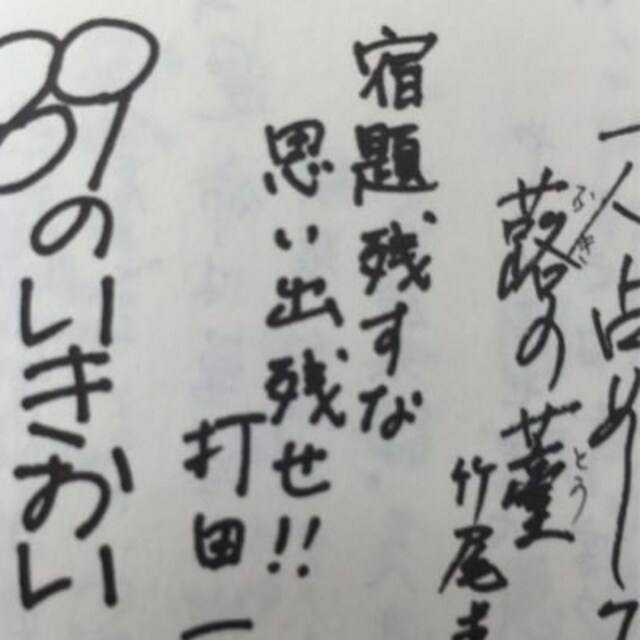 一人占めして
蕗の薹
ふき
とう
竹尾
宿題残すな
思い出残せ!!
打田一
39のいきおい